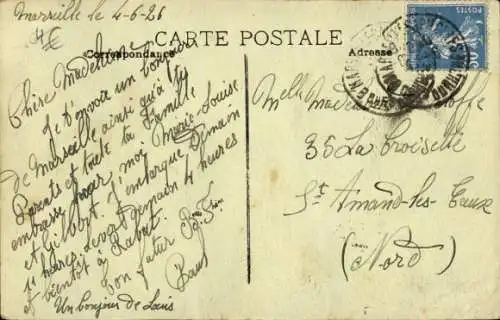 Marseille le 4-6-26
4€
CARTE POSTALE
Correspondance
Adresse
Chère Madeleine
Je t'envoie un bonjour
de Marseille ainsi qu'à ty
Parents et toute la Famille
embrasse pour moi Marie-Louise
et J'embarque demain
1 heures demain 4 heures
et bientôt à Rabat
Ton futur
Paul
Un bonjour de Louis
Melle
35 La Croisette
St Amand-les-Eaux
(Nord)